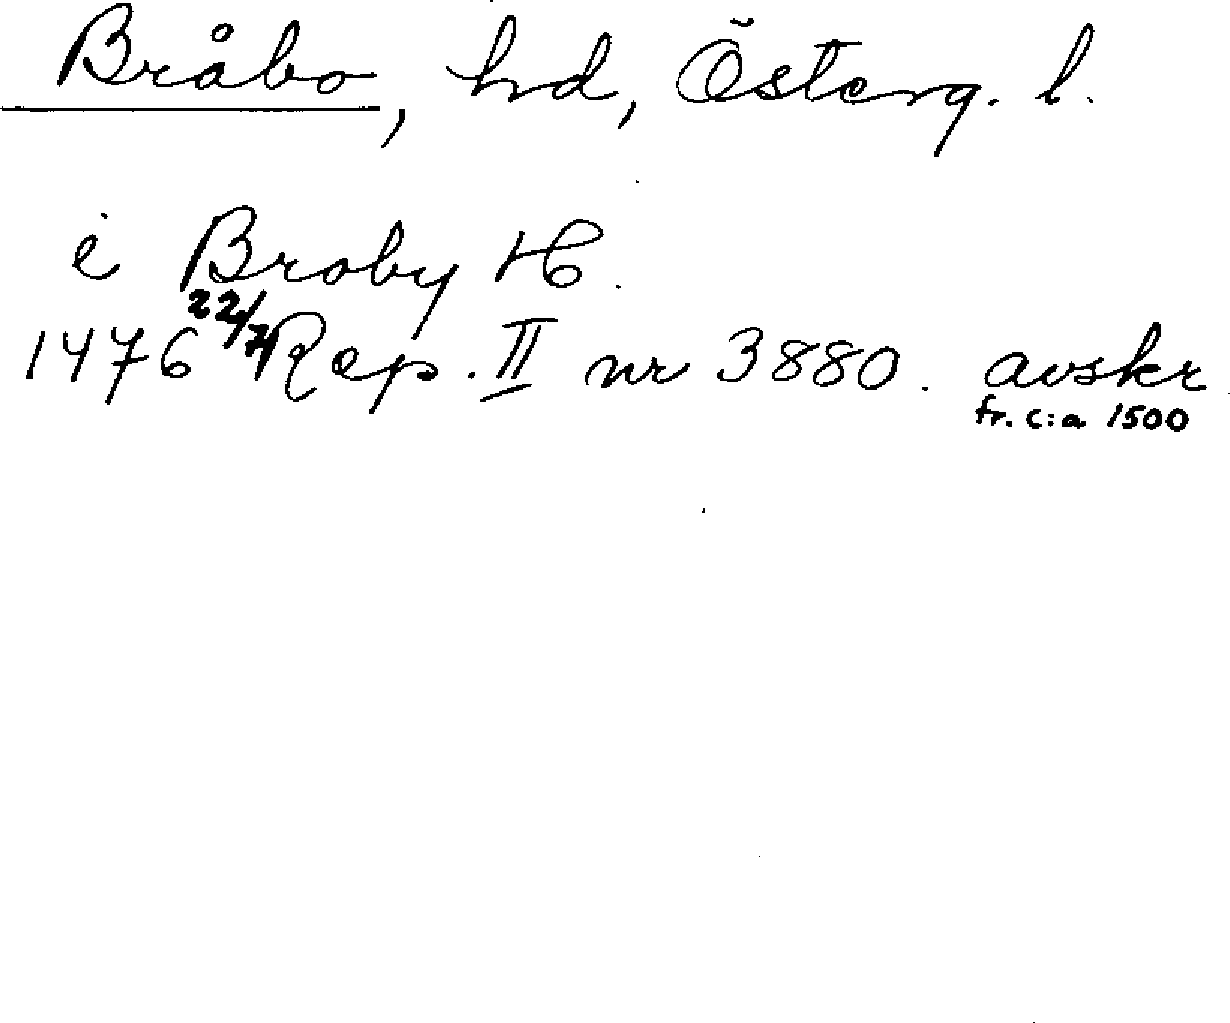 Bråbo, hd, Österg. l.
i Broby H.
1476 22/7 Rep. II nr 3880. avskr
fr. c:a 1500